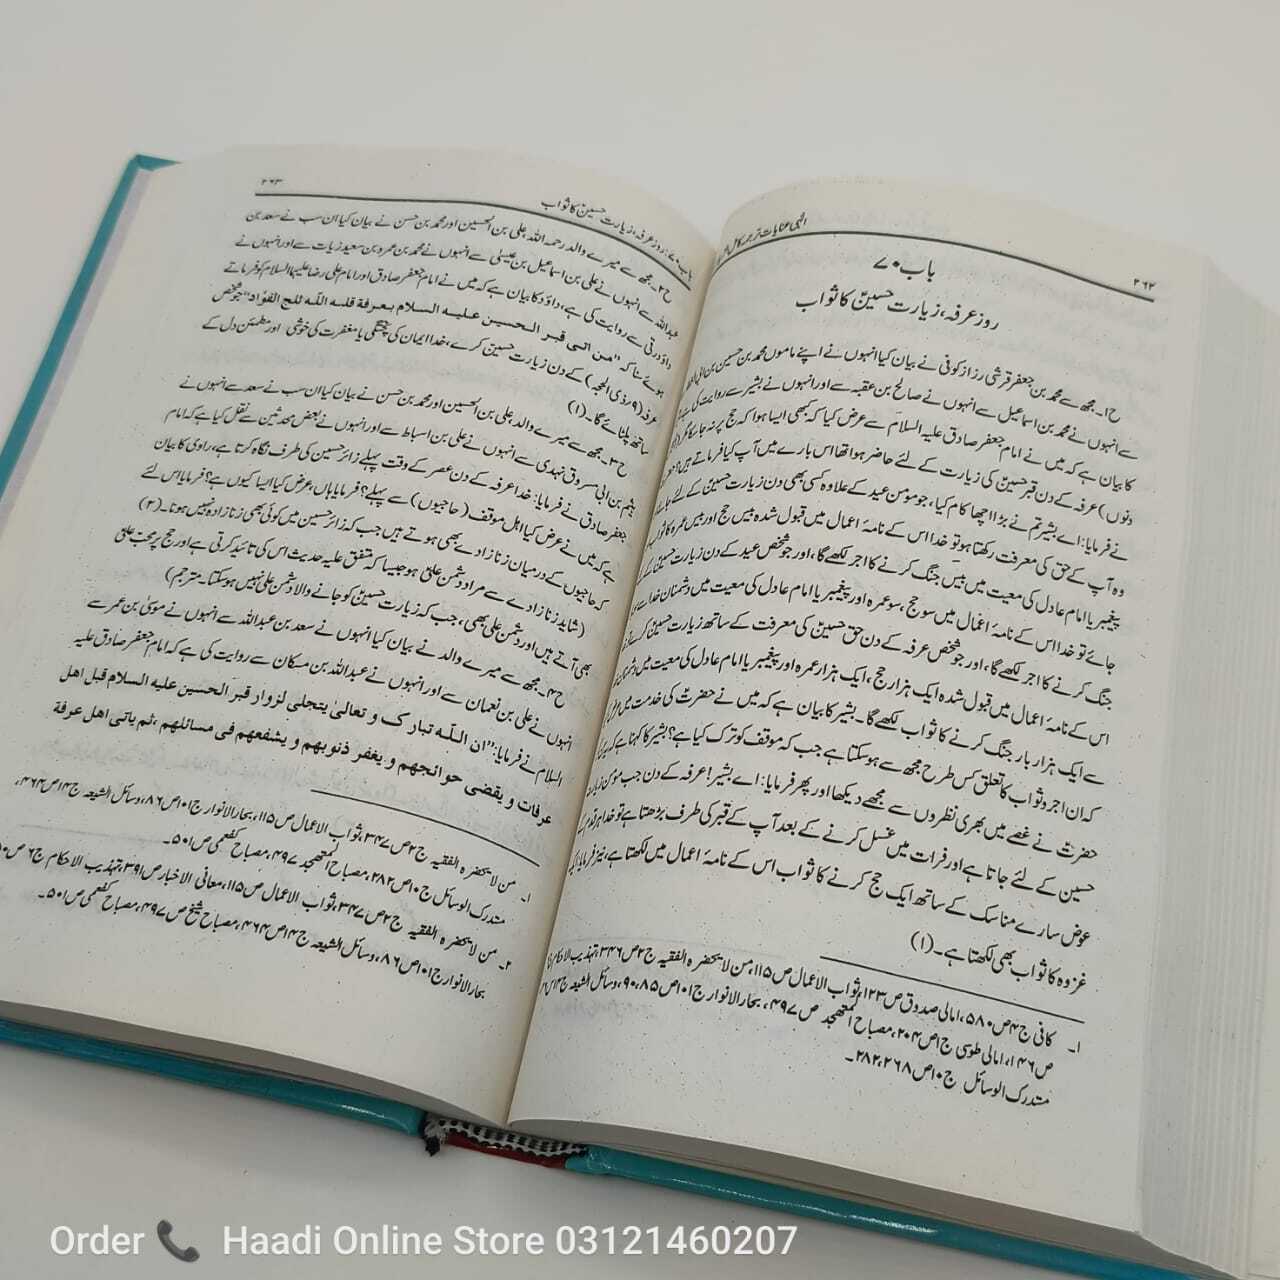 ۲۶۲
الٰہی عنایات ترجمہ کامل
باب ۷۰
روز عرفہ، زیارت حسینؑ کا ثواب
ح۱۔ مجھ سے محمد بن جعفر قرشی رزاز کوفی نے بیان کیا انہوں نے اپنے ماموں محمد بن حسین بن ابی
سے انہوں نے محمد بن اسماعیل سے انہوں نے صالح بن عقبہ سے اور انہوں نے بشیر سے روایت کی ہے
کا بیان ہے کہ میں نے امام جعفر صادق علیہ السلام سے عرض کیا کہ کبھی ایسا ہوا کہ حج پر نہ جا سکا مگر
دنوں) عرفہ کے دن قبر حسینؑ کی زیارت کے لئے حاضر ہوا تھا اس بارے میں آپ کیا فرماتے ہیں؟
نے فرمایا: اے بشیر تم نے بڑا اچھا کام کیا، جو مومن عید کے علاوہ کسی بھی دن زیارت حسینؑ کے لئے جائے
وہ آپ کے حق کی معرفت رکھتا ہو تو خدا اس کے نامۂ اعمال میں قبول شدہ بیس حج اور بیس عمرہ کا ثواب
پیغمبر یا امام عادل کی معیت میں بیس جنگ کرنے کا اجر لکھے گا، اور جو شخص عید کے دن زیارت حسینؑ کے لئے
جائے تو خدا اس کے نامۂ اعمال میں سو حج، سو عمرہ اور پیغمبر یا امام عادل کی معیت میں دشمنان خدا سے
جنگ کرنے کا اجر لکھے گا، اور جو شخص عرفہ کے دن حق حسینؑ کی معرفت کے ساتھ زیارت حسینؑ کرے
اس کے نامۂ اعمال میں قبول شدہ ایک ہزار حج، ایک ہزار عمرہ اور پیغمبر یا امام عادل کی معیت میں
سے ایک ہزار بار جنگ کرنے کا ثواب لکھے گا۔ بشیر کا بیان ہے کہ میں نے حضرتؑ کی خدمت میں
کہ ان اجر و ثواب کا تعلق کس طرح مجھ سے ہو سکتا ہے جب کہ موقف کو ترک کیا ہے؟ بشیر کا کہنا ہے کہ
حضرت نے غصے میں بھری نظروں سے مجھے دیکھا اور پھر فرمایا: اے بشیر! عرفہ کے دن جب مومن زیارت
حسین کے لئے جاتا ہے اور فرات میں غسل کرنے کے بعد آپ کے قبر کی طرف بڑھتا ہے تو خدا ہر قدم کے
عوض سارے مناسک کے ساتھ ایک حج کرنے کا ثواب اس کے نامۂ اعمال میں لکھتا ہے، نیز فرمایا:
غزوہ کا ثواب بھی لکھتا ہے۔(۱)
۱۔ کافی ج۴ ص۵۸۰، امالی صدوق ص۱۲۳، ثواب الاعمال ص۱۱۵، من لا یحضرہ الفقیہ ج۲ ص۳۴۶، تہذیب الاحکام
ص۱۴۶، امالی طوسی ج۱ ص۲۰۴، مصباح المتھجد ص۴۹۷، بحار الانوار ج۱۰۱ ص۸۵، ۹۰، وسائل الشیعہ
متدرک الوسائل ج۱۰ ص۲۶۸، ۲۸۲۔
۲۶۳
باب ۷۰: روز عرفہ، زیارت حسینؑ کا ثواب
ح۲۔ مجھ سے میرے والد رحمہ اللہ، علی بن الحسین اور محمد بن حسن نے بیان کیا ان سب نے سعد بن
عبد اللہ سے انہوں نے علی بن اسماعیل بن عیسیٰ سے انہوں نے محمد بن عمرو بن سعید زیات سے اور انہوں نے
داؤد رقی سے روایت کی ہے، داؤد کا بیان ہے کہ میں نے امام جعفر صادق اور امام علی رضا علیہما السلام کو فرماتے
ہوئے سنا کہ ”من اتی قبر الحسین علیہ السلام بعرفة قلبه الله ثلج الفؤاد“ جو شخص
عرفہ (۹؍ذی الحجہ) کے دن زیارت حسینؑ کرے، خدا ایمان کی پختگی یا مغفرت کی خوشی اور مطمئن دل کے
ساتھ پلٹائے گا۔(۱)
ح۳۔ مجھ سے میرے والد، علی بن الحسین اور محمد بن حسن نے بیان کیا ان سب نے سعد سے انہوں نے
ہیثم بن ابی مسروق نہدی سے انہوں نے علی بن اسباط سے اور انہوں نے بعض محدثین سے نقل کیا ہے کہ امام
جعفر صادق نے فرمایا: خدا عرفہ کے دن عصر کے وقت پہلے زائر حسین کی طرف نگاہ کرتا ہے، راوی کا بیان
ہے کہ میں نے عرض کیا اہل موقف (حاجیوں) سے پہلے؟ فرمایا ہاں، عرض کیا ایسا کیوں ہے؟ فرمایا اس لئے
کہ حاجیوں کے درمیان زنا زادے بھی ہوتے ہیں جب کہ زائر حسین میں کوئی بھی زنا زادہ نہیں ہوتا۔(۲)
(شاید زنا زادے سے مراد دشمن علیؑ ہو جیسا کہ متفق علیہ حدیث اس کی تائید کرتی ہے اور حج پر محب علیؑ
بھی آتے ہیں اور دشمن علی بھی، جب کہ زیارت حسینؑ کو جانے والا دشمن علی نہیں ہو سکتا۔ مترجم)
ح۴۔ مجھ سے میرے والد نے بیان کیا انہوں نے سعد بن عبد اللہ سے انہوں نے موسیٰ بن عمر سے
انہوں نے علی بن نعمان سے اور انہوں نے عبد اللہ بن مسکان سے روایت کی ہے کہ امام جعفر صادق علیہ
السلام نے فرمایا: ”ان اللّٰه تبارک و تعالیٰ یتجلی لزوار قبر الحسین علیہ السلام قبل اهل
عرفات و یقضی حوائجهم و یغفر ذنوبهم و یشفعهم فی مسائلهم، ثم یاتی اهل عرفة
۱۔ من لا یحضرہ الفقیہ ج۲ ص۳۴۷، ثواب الاعمال ص۱۱۵، بحار الانوار ج۱۰۱ ص۸۶، وسائل الشیعہ ج۱۴ ص۴۶۴،
متدرک الوسائل ج۱۰ ص۲۸۲، مصباح المتھجد ص۴۹۷، مصباح کفعمی ص۵۰۱۔
۲۔ من لا یحضرہ الفقیہ ج۲ ص۳۴۷، ثواب الاعمال ص۱۱۵، معانی الاخبار ص۳۹۱، تہذیب الاحکام ج۶ ص۵۰
بحار الانوار ج۱۰۱ ص۸۶، وسائل الشیعہ ج۱۴ ص۴۶۴، مصباح شیخ ص۴۹۷، مصباح کفعمی ص۵۰۱۔
Order 📞 Haadi Online Store 03121460207